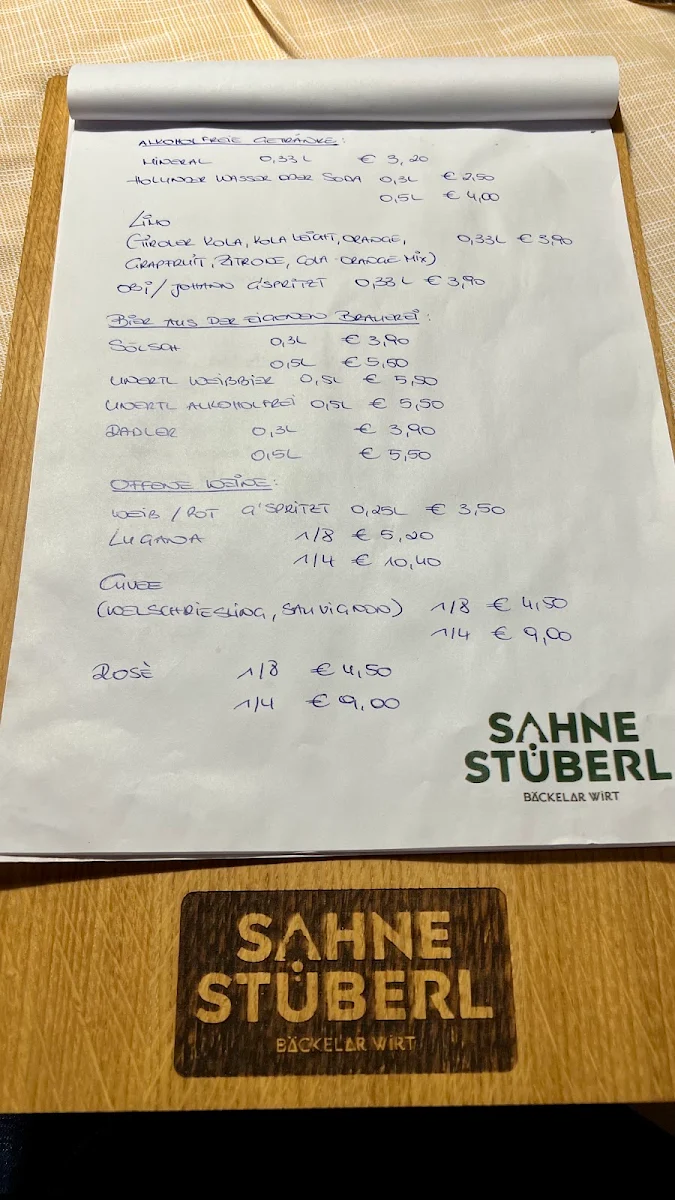 ALKOHOLFREIE GETRÄNKE:
MINERAL 0,33L € 3,20
HOLUNDER WASSER ODER SODA 0,3L € 2,50
0,5L € 4,00
LIMO
(TIROLER KOLA, KOLA LEICHT, ORANGE, 0,33L € 3,90
GRAPFRUIT, ZITRONE, COLA-ORANGE MIX)
OBI / JOHANN G'SPRITZT 0,33L € 3,90
BIER AUS DER EIGENEN BRAUEREI:
SÖLSCH 0,3L € 3,90
0,5L € 5,50
UNERTL WEIßBIER 0,5L € 5,50
UNERTL ALKOHOLFREI 0,5L € 5,50
RADLER 0,3L € 3,90
0,5L € 5,50
OFFENE WEINE:
WEIß / ROT G'SPRITZT 0,25L € 3,50
LUGANA 1/8 € 5,20
1/4 € 10,40
CUVEE
(WELSCHRIESLING, SAUVIGNON) 1/8 € 4,50
1/4 € 9,00
ROSÈ 1/8 € 4,50
1/4 € 9,00
SAHNE
STÜBERL
BÄCKELAR WIRT
SAHNE
STÜBERL
BÄCKELAR WIRT